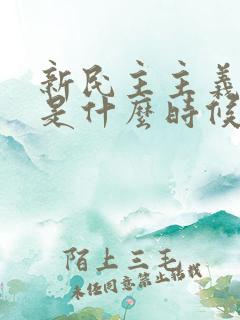 新民主主義
是什麼時候
陌上三毛
未经同意禁止搭载